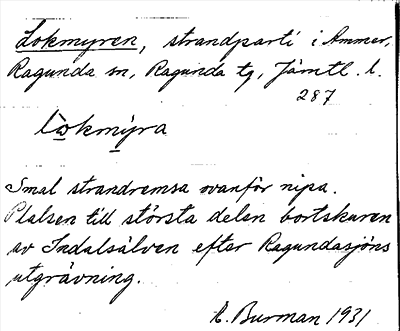 Lokmyren, strandparti i Ammer,
Ragunda sn, Ragunda tg, Jämtl. l.
287
lòkmýra
Smal strandremsa ovanför nipa.
Platsen till största delen bortskuren
av Indalsälven efter Ragundasjöns
utgrävning.
E. Burman 1931